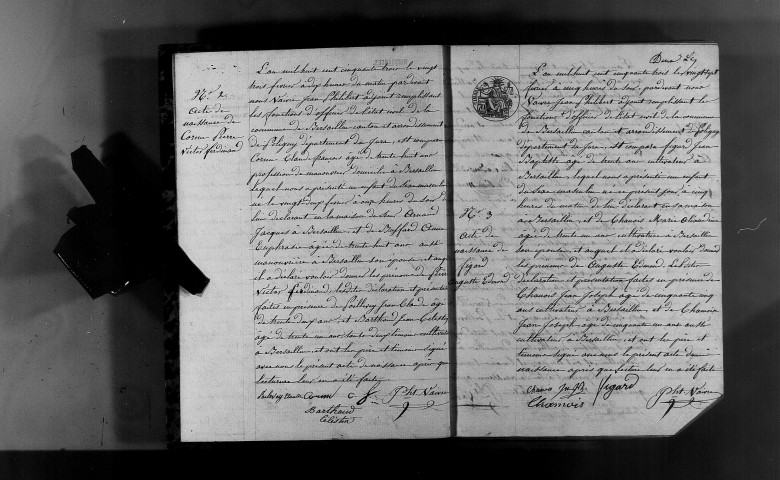 N.° 2
acte de
naissance de
Cornu Pierre
Victor ferdinand
L'an mil huit cent cinquante trois le vingt
trois fevrier à dix heures du matin par devant
nous Vaire Jean Philibert adjoint remplissant
les fonctions d'officier de l'état civil de la
commune de Bersaillin canton et arrondissement
de Poligny département du Jura, est comparu
Cornu Claude francois agé de trente huit ans
profession de manouvrier domicilié à Bersaillin
lequel nous a présenté un enfant de sexe masculin
né le vingt deux fevrier à onze heures du soir de
lui déclarant en la maison de
Jacques à Bersaillin et de Boffard
Euphrasie agée de trente huit ans aussi
manouvrière à Bersaillin son épouse et auquel
il a déclaré vouloir donner les prénoms de Pierre
Victor ferdinand, lesdites déclaration et présentation
faites en présence de Jean Claude agé
de trente deux ans, et Barthaud Jean Celestin
agé de trente un ans tous deux cultivateurs
à Bersaillin, et ont les père et témoins signé
avec nous le présent acte de naissance après que
lecture leur en a été faite
Cornu C f Pht Vaire
Barthaud
Célestin
Deux
N.° 3
Acte de
naissance de
figard
Auguste Edmond
L'an mil huit cent cinquante trois le vingt sept
fevrier à cinq heures du soir, par devant nous
Vaire Jean Philibert adjoint remplissant les
fonctions d'officier de l'état civil de la commune
de Bersaillin canton et arrondissement de Poligny
département du Jura, est comparu figard Jean
Baptiste agé de trente ans cultivateur à
Bersaillin, lequel nous a présenté un enfant
du sexe masculin né ce présent jour à cinq
heures du matin de lui déclarant en sa maison
à Bersaillin, et de Chamois Marie
agée de trente un ans cultivatrice à Bersaillin
son épouse, et auquel il a déclaré vouloir donner
les prénoms de Auguste Edmond, lesdites
déclaration et présentation faites en présence de
Chamois Jean Joseph agé de cinquante cinq
ans cultivateur à Bersaillin, et de Chamois
Jean Joseph agé de cinquante un ans aussi
cultivateur à Bersaillin, et ont les père et
témoins signé avec nous le présent acte de
naissance après que lecture leur en a été faite
Chamois figard
Chamois Pht Vaire